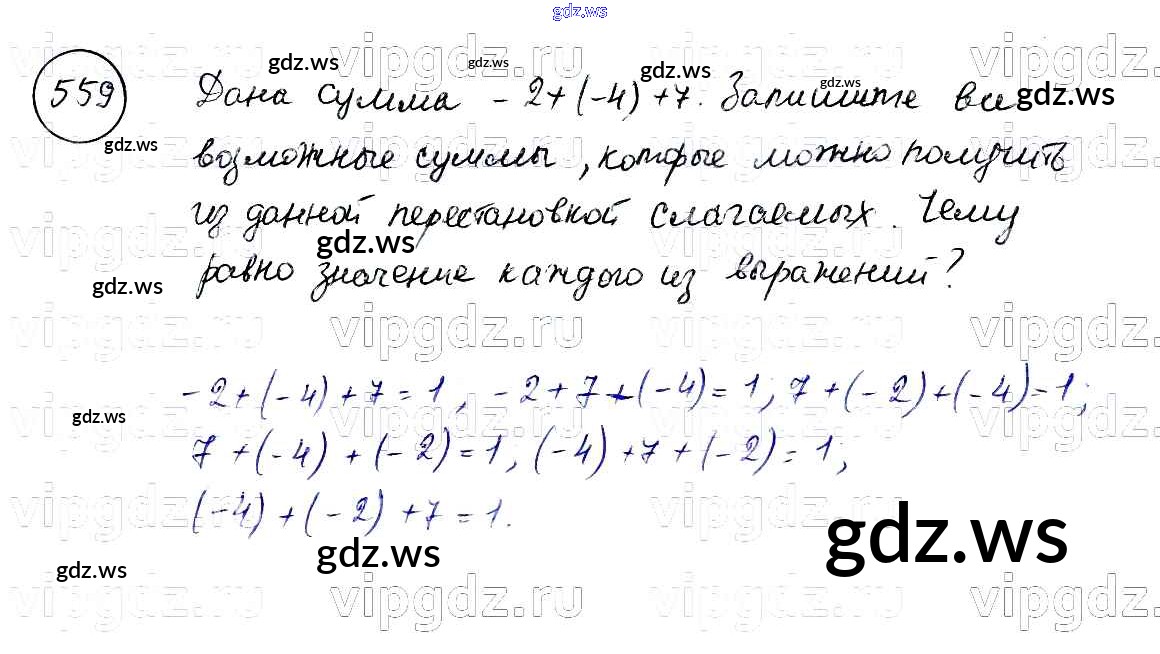 gdz.ws
vipgdz.ru vipgdz.ru vipgdz.ru vipgdz
gdz.ws gdz.ws gdz.ws gdz.ws gdz.ws
559 Дана сумма -2+(-4)+7. Запишите все
gdz.ws
возможные суммы, которые можно получить
vipgdz.ru vipgdz.ru vipgdz.ru vipgdz
из данной перестановкой слагаемых. Чему
gdz.ws
равно значение каждого из выражений?
gdz.ws
vipgdz.ru vipgdz.ru vipgdz.ru vipgdz
-2+(-4)+7=1, -2+7+(-4)=1; 7+(-2)+(-4)=1;
gdz.ws
vipgdz.ru vipgdz.ru vipgdz.ru vipgdz
7+(-4)+(-2)=1, (-4)+7+(-2)=1,
vipgdz.ru vipgdz.ru vipgdz.ru vipgdz
(-4)+(-2)+7=1.
gdz.ws gdz.ws gdz.ws
vipgdz.ru vipgdz.ru vipgdz.ru vipgdz